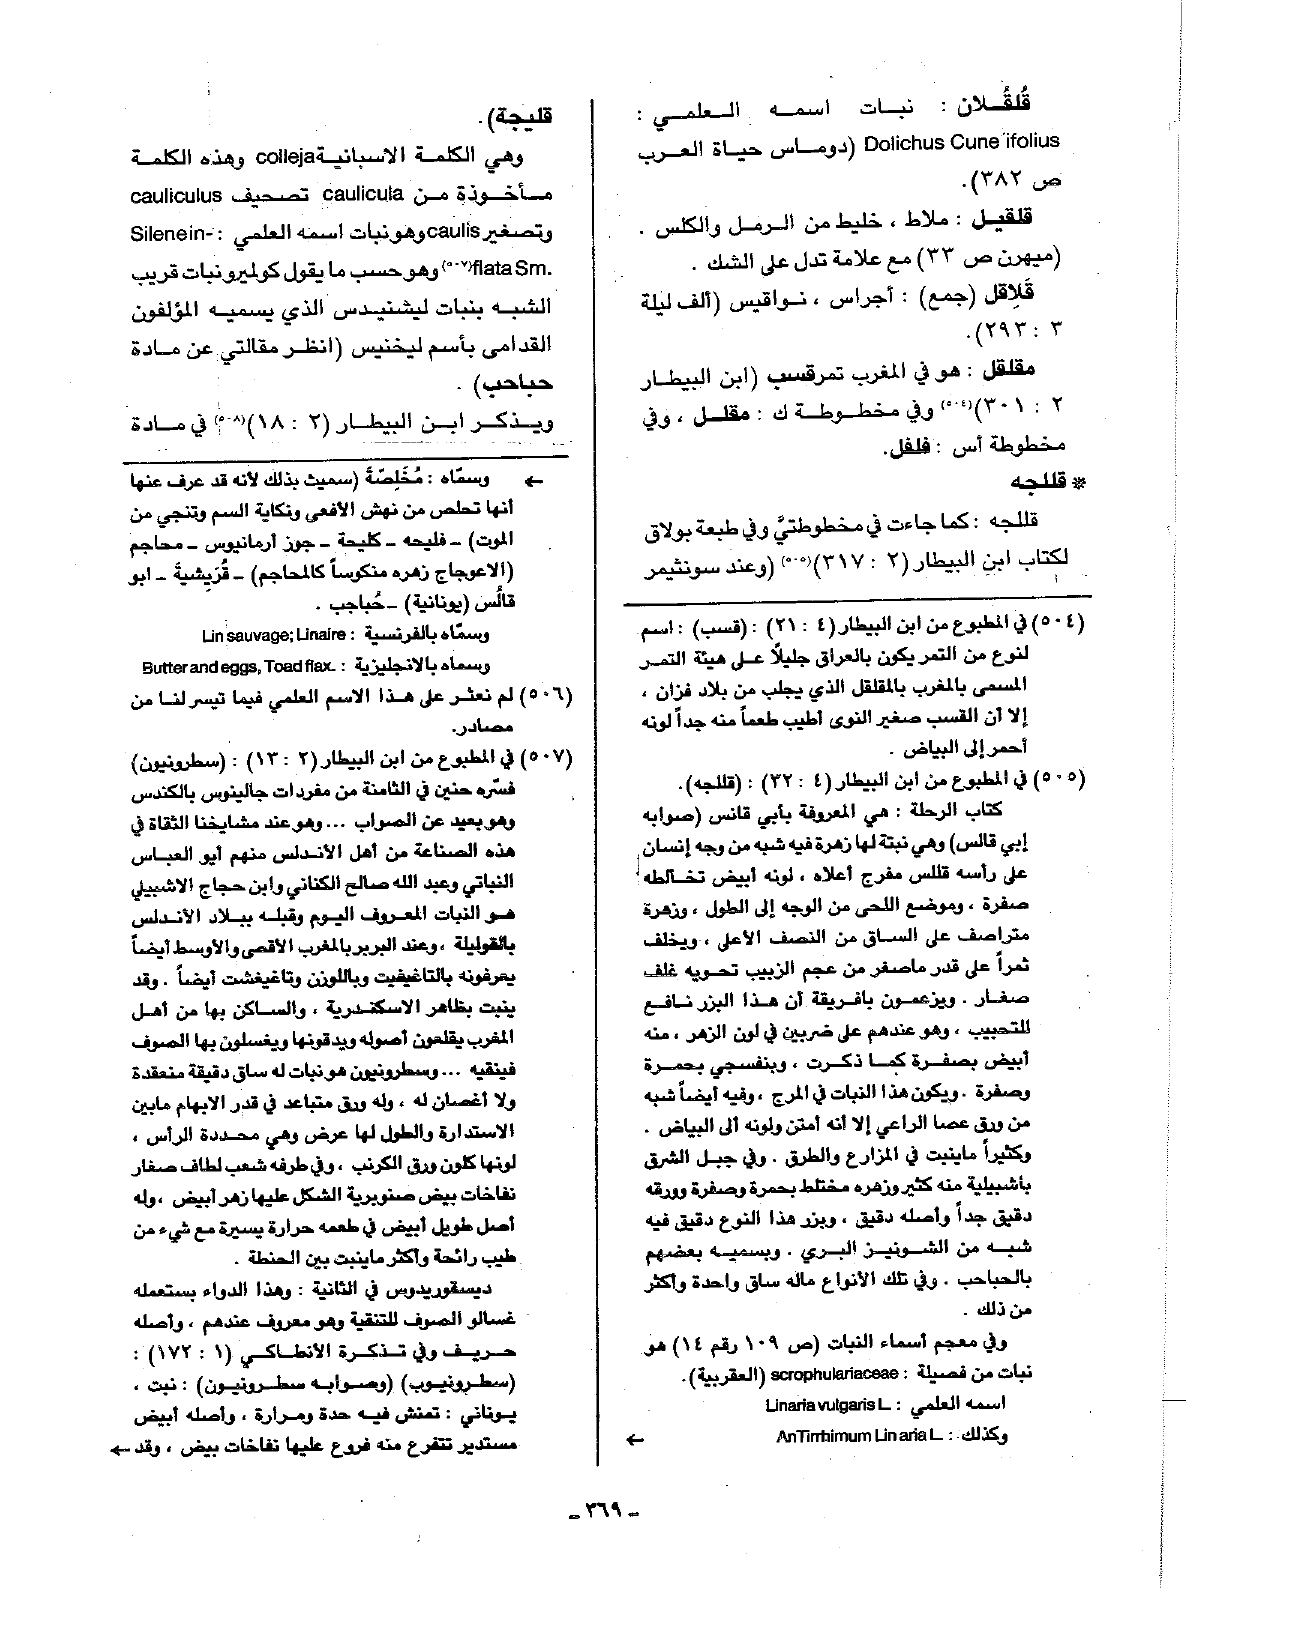 قُلقُلان : نبات اسمه العلمي :
Dolichus Cune ifolius (دوماس حياة العرب
ص ٣٨٢).
قلقيل : ملاط ، خليط من الرمل والكلس .
(ميهرن ص ٣٣) مع علامة تدل على الشك .
قَلاقل (جمع) : أجراس ، نواقيس (ألف ليلة
٣ : ٢٩٣).
مقلقل : هو في المغرب تمرقسب (ابن البيطار
٢ : ٣٠١)(٥٠٤) وفي مخطوطة ك : مقلل ، وفي
مخطوطة أس : فلفل.
* قللجه
قللجه : كما جاءت في مخطوطتيّ وفي طبعة بولاق
لكتاب ابن البيطار (٢ : ٣١٧)(٥٠٥) (وعند سونثيمر
(٥٠٤) في المطبوع من ابن البيطار (٤ : ٢١) : (قسب) : اسم
لنوع من التمر يكون بالعراق جليلاً على هيئة التمر
المسمى بالمغرب بالمقلقل الذي يجلب من بلاد فزان ،
إلا أن القسب صغير النوى أطيب طعماً منه جداً لونه
أحمر إلى البياض .
(٥٠٥) في المطبوع من ابن البيطار (٤ : ٣٢) : (قللجه).
كتاب الرحلة : هي المعروفة بأبي قانس (صوابه
إبي قالس) وهي نبتة لها زهرة فيه شبه من وجه إنسان
على رأسه قللس مفرج أعلاه ، لونه أبيض تخالطه
صفرة ، وموضع اللحى من الوجه إلى الطول ، وزهرة
متراصف على الساق من النصف الأعلى ، ويخلف
ثمراً على قدر ماصغر من عجم الزبيب تحويه غلف
صغار . ويزعمون بافريقة أن هذا البزر نافع
للتحبيب ، وهو عندهم على ضربين في لون الزهر ، منه
أبيض بصفرة كما ذكرت ، وبنفسجي بحمرة
وصفرة . ويكون هذا النبات في المرج ، وفيه أيضاً شبه
من ورق عصا الراعي إلا أنه أمتن ولونه ألى البياض .
وكثيراً ماينبت في المزارع والطرق . وفي جبل الشرق
باشبيلية منه كثير وزهره مختلط بحمرة وصفرة وورقه
دقيق جداً وأصله دقيق ، وبزر هذا النوع دقيق فيه
شبه من الشونيز البري . ويسميه بعضهم
بالحباحب . وفي تلك الأنواع ماله ساق واحدة وأكثر
من ذلك .
وفي معجم أسماء النبات (ص ١٠٩ رقم ١٤) هو
نبات من فصيلة : scrophulariaceae (العقربية).
اسمه العلمي : Linaria vulgaris L.
وكذلك : AnTirrhimum Linaria L.
←
قليجة).
وهي الكلمة الاسبانية colleja وهذه الكلمة
مأخوذة من caulicula تصحيف cauliculus
وتصغير caulis وهو نبات اسمه العلمي : Silenein-
flata Sm.(٥٠٧) وهو حسب ما يقول كولميرو نبات قريب
الشبه بنبات ليشنيدس الذي يسميه المؤلفون
القدامى بأسم ليخنيس (انظر مقالتي عن مادة
حباحب) .
ويذكر ابن البيطار (٢ : ١٨)(٥٠٨) في مادة
← وسمّاه : مُخَلِصّة (سميت بذلك لأنه قد عرف عنها
أنها تخلص من نهش الأفعى ونكاية السم وتنجي من
الموت) – فليحه – كليحة – جوز أرمانيوس – محاجم
(الاعوجاج زهره منكوساً كالمحاجم) – قُرَيشيةَ – ابو
قالُس (يونانية) – حُباجب .
وسمّاه بالفرنسية : Lin sauvage; Linaire
وسماه بالانجليزية : Butter and eggs, Toad flax.
(٥٠٦) لم نعثر على هذا الاسم العلمي فيما تيسر لنا من
مصادر.
(٥٠٧) في المطبوع من ابن البيطار (٢ : ١٣) : (سطرونيون)
فسّره حنين في الثامنة من مفردات جالينوس بالكندس
وهو بعيد عن الصواب ... وهو عند مشايخنا الثقاة في
هذه الصناعة من أهل الأندلس منهم أبو العباس
النباتي وعبد الله صالح الكتاني وابن حجاج الاشبيلي
هو النبات المعروف اليوم وقبله ببلاد الأندلس
بالقوليلة ، وعند البربر بالمغرب الأقصى والأوسط أيضاً
يعرفونه بالتاغيفيت وباللوزن وتاغيغشت أيضاً . وقد
ينبت بظاهر الاسكندرية ، والساكن بها من أهل
المغرب يقلعون أصوله ويدقونها ويغسلون بها الصوف
فينقيه ... وسطرونيون هو نبات له ساق دقيقة منعقدة
ولا أغصان له ، وله ورق متباعد في قدر الابهام مابين
الاستدارة والطول لها عرض وهي محددة الرأس ،
لونها كلون ورق الكرنب ، وفي طرفه شعب لطاف صغار
نفاخات بيض صنوبرية الشكل عليها زهر أبيض ، وله
أصل طويل أبيض في طعمه حرارة يسيرة مع شيء من
طيب رائحة وأكثر ماينبت بين الحنطة .
ديسقوريدوس في الثانية : وهذا الدواء يستعمله
غسالو الصوف للتنقية وهو معروف عندهم ، وأصله
حريف وفي تذكرة الأنطاكي (١ : ١٧٢) :
(سطرونيوب) (وصوابه سطرونيون) : نبت ،
يوناني : تمنش فيه حدة ومرارة ، وأصله أبيض
مستدير تتفرع منه فروع عليها نفاخات بيض ، وقد ←
– ٣٦٩ –